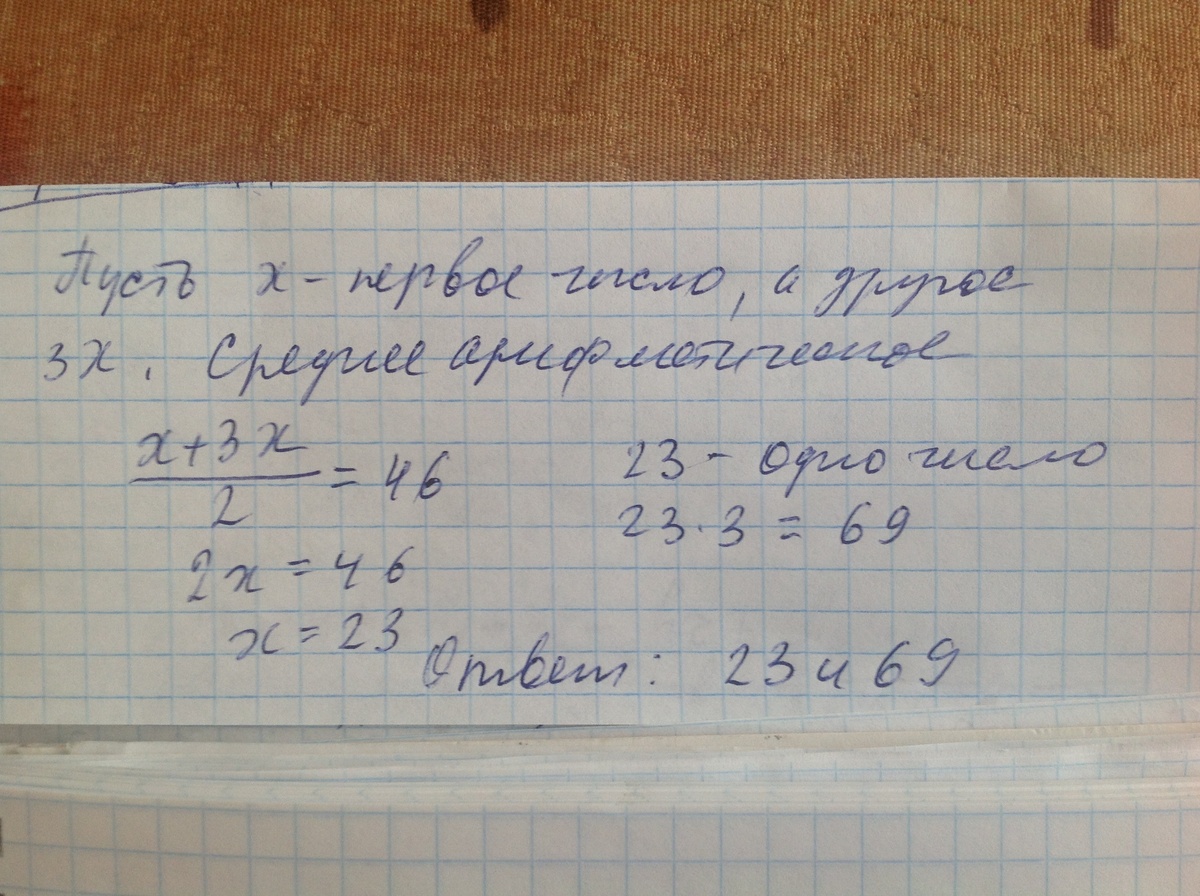 Пусть x - первое число, а другое
3x. Среднее арифметическое
x+3x
/2 = 46
2x = 46
x = 23
23 - одно число
23·3 = 69
Ответ: 23 и 69